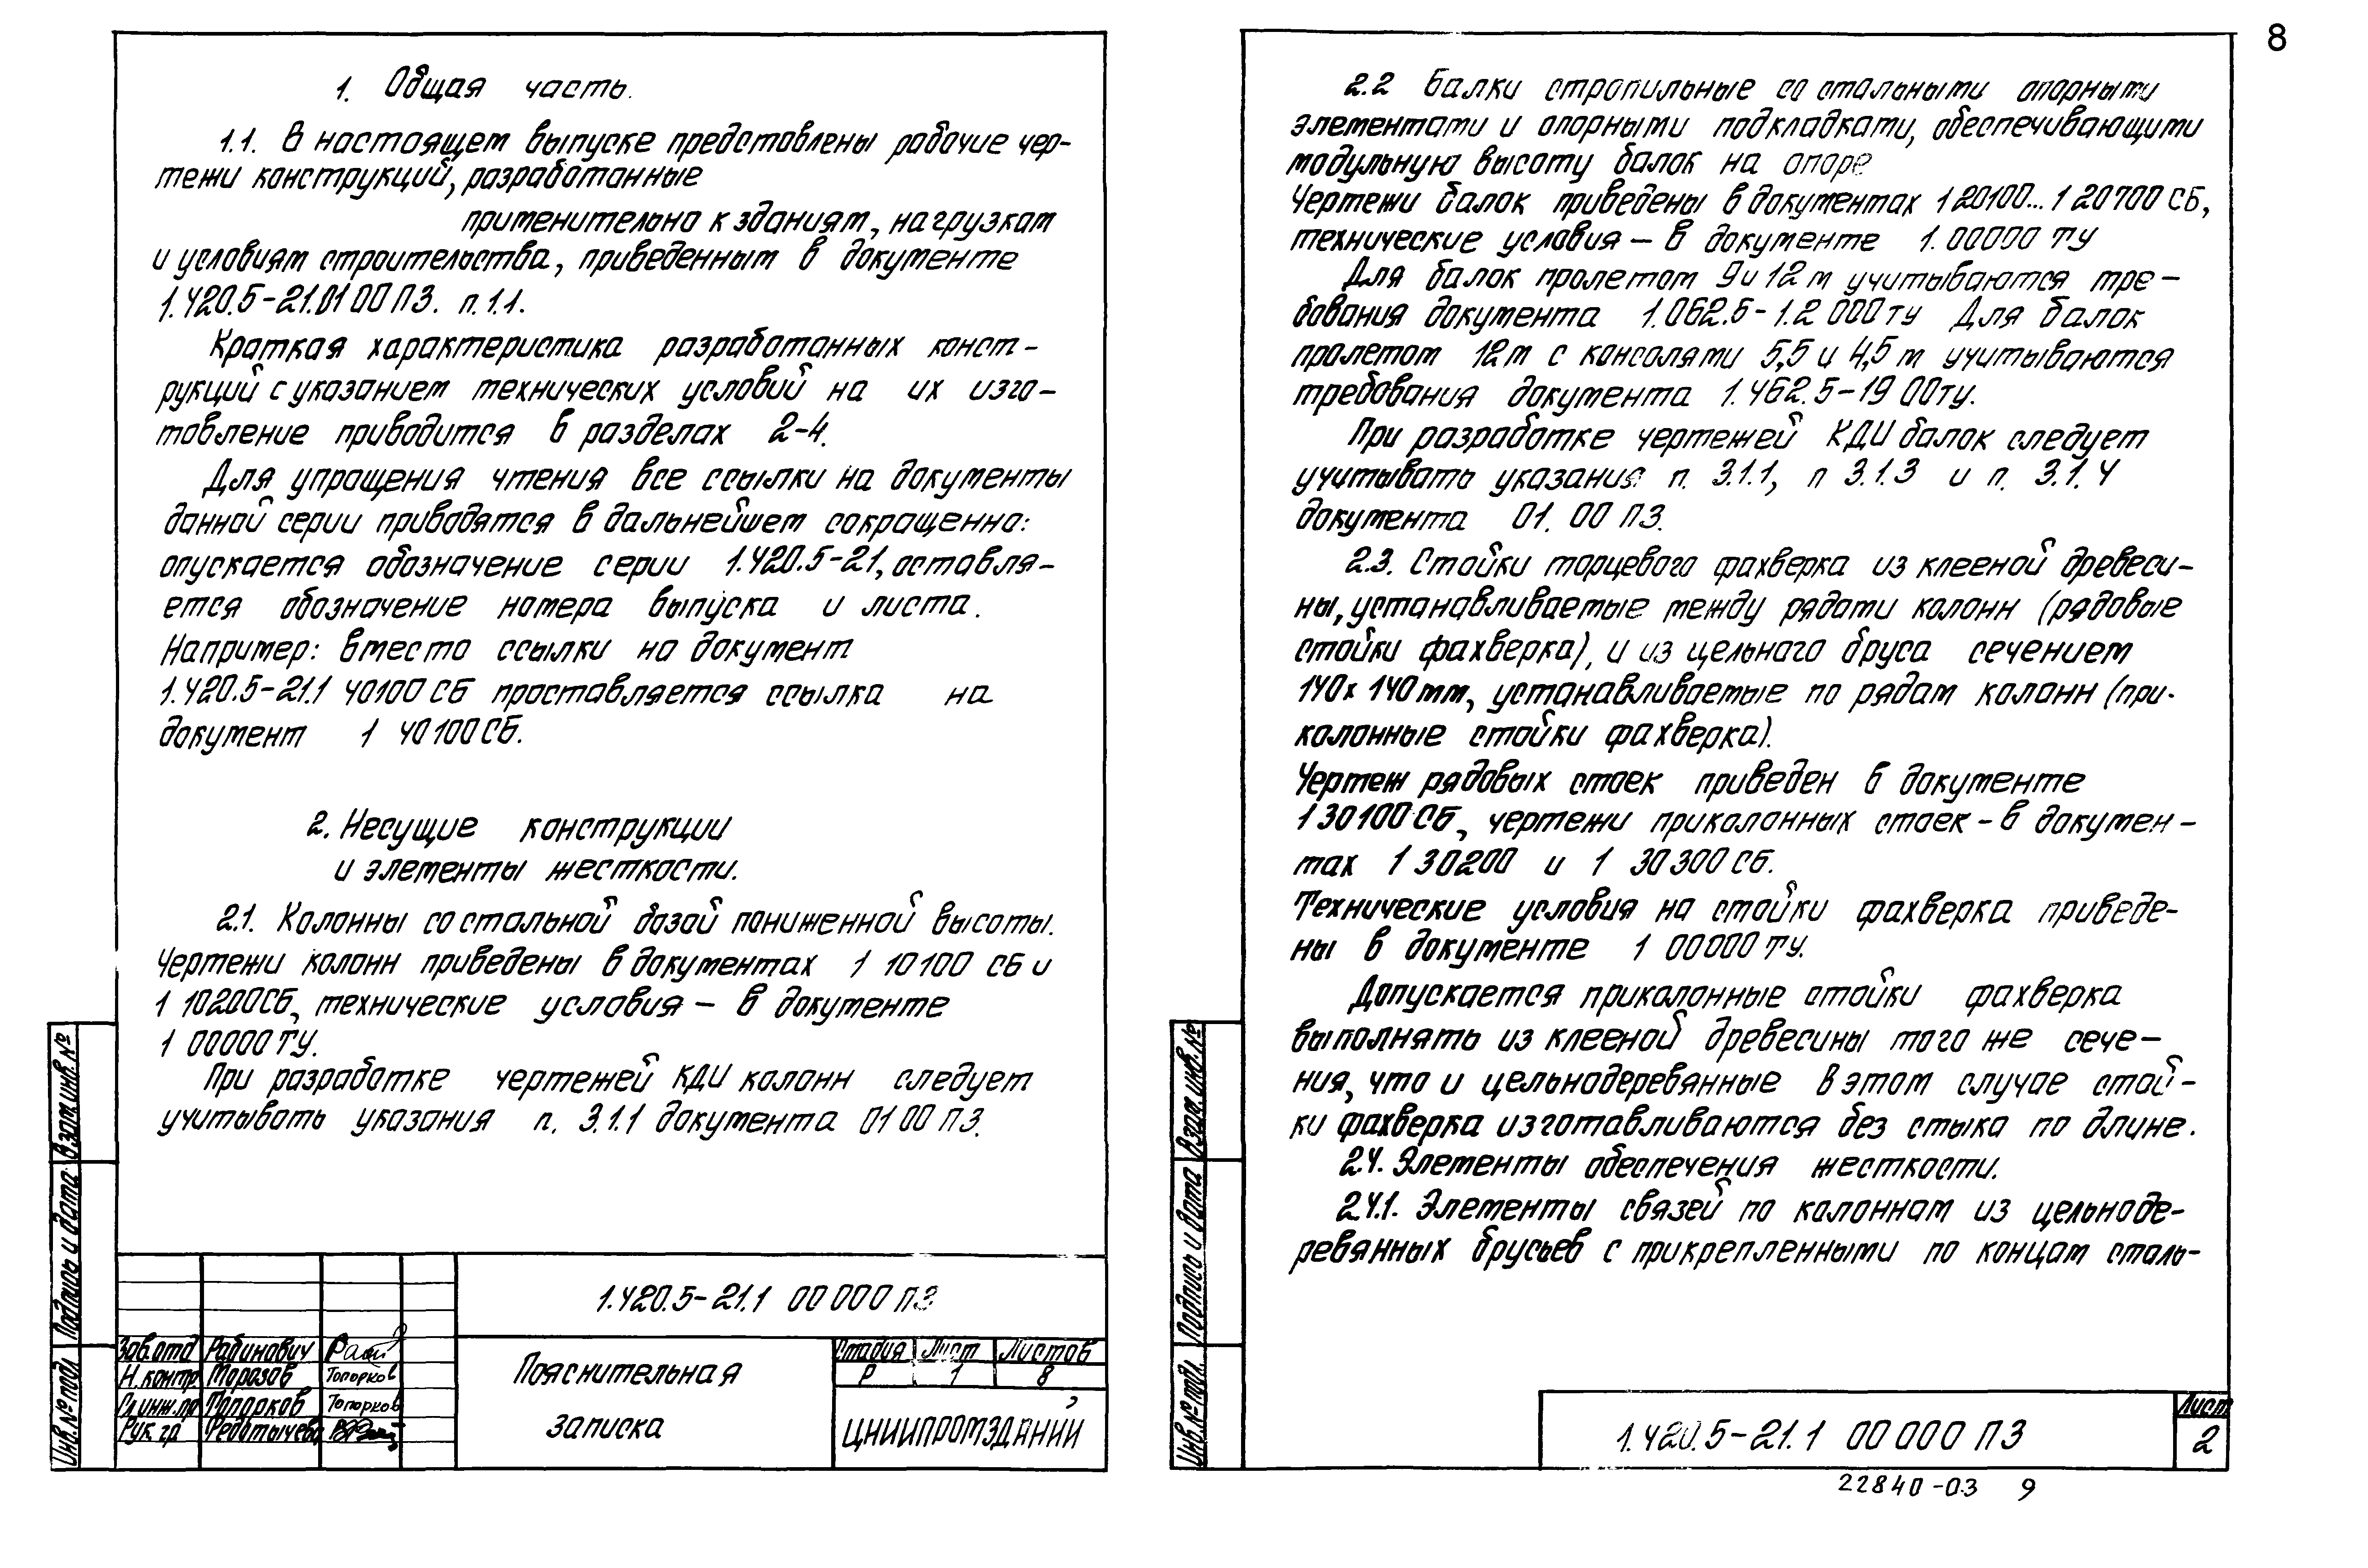 8
1. Общая часть.
1.1. В настоящем выпуске представлены рабочие чер-
тежи конструкций, разработанные
применительно к зданиям, нагрузкам
и условиям строительства, приведенным в документе
1.420.5-21.0100ПЗ. п.1.1.
Краткая характеристика разработанных конст-
рукций с указанием технических условий на их изго-
товление приводится в разделах 2-4.
Для упрощения чтения все ссылки на документы
данной серии приводятся в дальнейшем сокращенно:
опускается обозначение серии 1.420.5-21, оставля-
ется обозначение номера выпуска и листа.
Например: вместо ссылки на документ
1.420.5-21.1 40100СБ проставляется ссылка на
документ 1 40100СБ.
2. Несущие конструкции
и элементы жесткости.
2.1. Колонны со стальной базой пониженной высоты.
Чертежи колонн приведены в документах 1 10100 СБ и
1 10200СБ, технические условия – в документе
1 00000ТУ.
При разработке чертежей КДИ колонн следует
учитывать указания п. 3.1.1 документа 0100ПЗ.
Взам.инв.№
Подпись и дата
Инв.№ подл
1.420.5-21.1 00000ПЗ
Зав.отд Рабинович
Н.контр Морозов Топорков
Гл.инж.пр Топорков Топорков
Рук.гр
Пояснительная
записка
Стадия Лист Листов
Р 1 8
ЦНИИПРОМЗДАНИЙ
2.2 Балки стропильные со стальными опорными
элементами и опорными подкладками, обеспечивающими
модульную высоту балок на опоре
Чертежи балок приведены в документах 1 20100...1 20700СБ,
технические условия – в документе 1.00000 ТУ
Для балок пролетом 9 и 12 м учитываются тре-
бования документа 1.062.5-1.2 000ТУ Для балок
пролетом 12м с консолями 5,5 и 4,5 м учитываются
требования документа 1.462.5-19 00ТУ.
При разработке чертежей КДИ балок следует
учитывать указания п. 3.1.1, п 3.1.3 и п. 3.1.4
документа 01.00ПЗ.
2.3. Стойки торцевого фахверка из клееной древеси-
ны, устанавливаемые между рядами колонн (рядовые
стойки фахверка), и из цельного бруса сечением
140х140мм, устанавливаемые по рядам колонн (при-
колонные стойки фахверка).
Чертеж рядовых стоек приведен в документе
1 30100СБ, чертежи приколонных стоек – в докумен-
тах 1 30200 и 1 30300СБ.
Технические условия на стойки фахверка приведе-
ны в документе 1 00000ТУ.
Допускается приколонные стойки фахверка
выполнять из клееной древесины того же сече-
ния, что и цельнодеревянные В этом случае стой-
ки фахверка изготавливаются без стыка по длине.
2.4. Элементы обеспечения жесткости.
2.4.1. Элементы связей по колоннам из цельноде-
ревянных брусьев с прикрепленными по концам сталь-
Взам.инв.№
Подпись и дата
Инв.№ подл.
1.420.5-21.1 00000ПЗ
Лист
2
22840-03 9